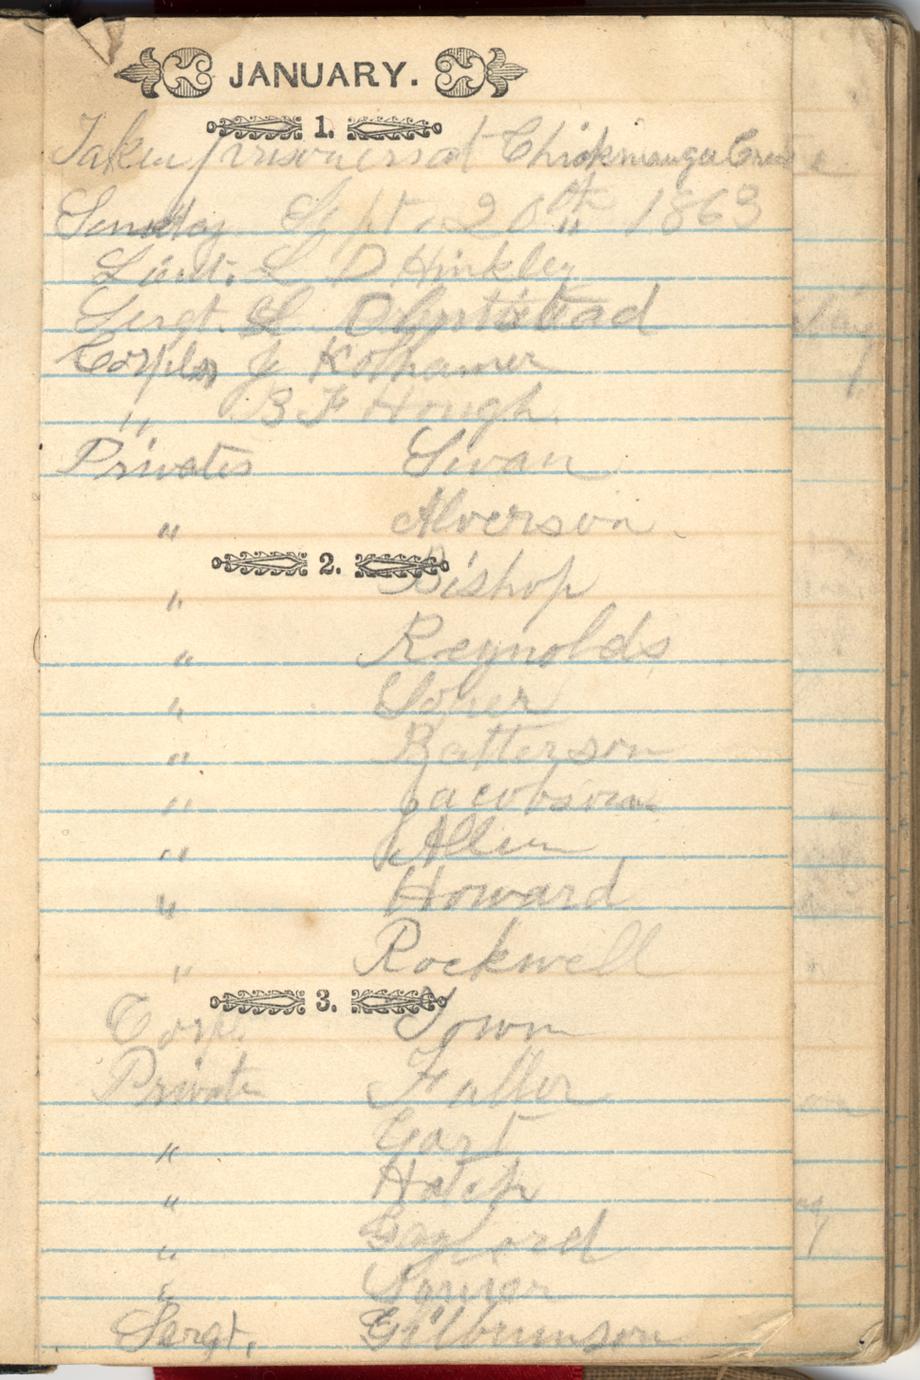 JANUARY.
1.
Taken prisoners at Chickmauga
Sunday Sept. 20th 1863
Lieut. L D Hinkley
Sergt. L Olmstead
Corpls J Kolhamer
" B F Hough.
Privates Swan
" Alverson
2.
" Bishop
" Reynolds
"
" Batterson
" Jacobson
" Allen
" Howard
" Rockwell
3.
Corp. Town
Private Fuller
"
" Hatch
" Gaylord
"
Sergt. Gilbrunson